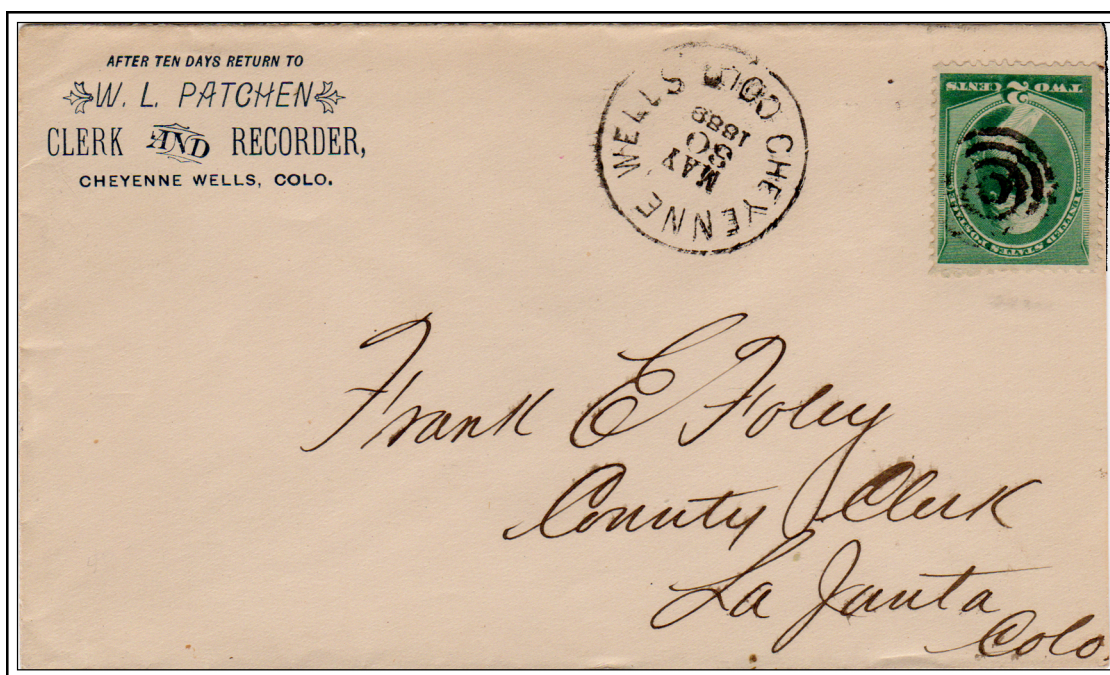 AFTER TEN DAYS RETURN TO
W. L. PATCHEN
CLERK AND RECORDER,
CHEYENNE WELLS, COLO.
CHEYENNE WELLS COLO.
MAY
30
1889
UNITED STATES POSTAGE
TWO 2 CENTS
Frank E Foley
County Clerk
La Junta
Colo.